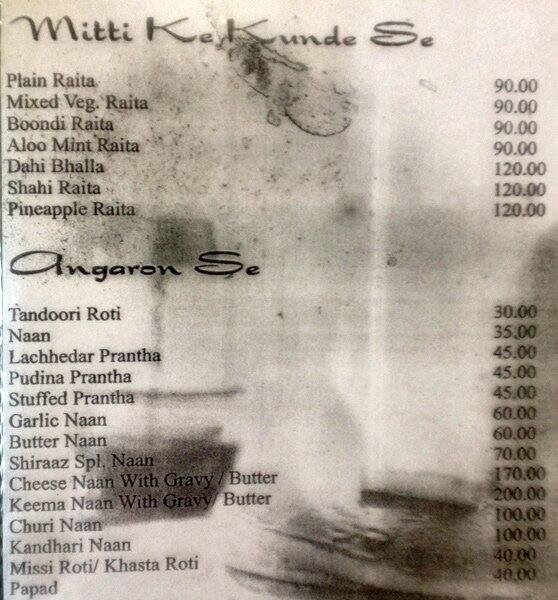 Mitti Ke Kunde Se
Plain Raita 90.00
Mixed Veg. Raita 90.00
Boondi Raita 90.00
Aloo Mint Raita 90.00
Dahi Bhalla 120.00
Shahi Raita 120.00
Pineapple Raita 120.00
Angaron Se
Tandoori Roti 30.00
Naan 35.00
Lachhedar Prantha 45.00
Pudina Prantha 45.00
Stuffed Prantha 45.00
Garlic Naan 60.00
Butter Naan 60.00
Shiraaz Spl. Naan 70.00
Cheese Naan With Gravy / Butter 170.00
Keema Naan With Gravy/ Butter 200.00
Churi Naan 100.00
Kandhari Naan 100.00
Missi Roti/ Khasta Roti 40.00
Papad 40.00